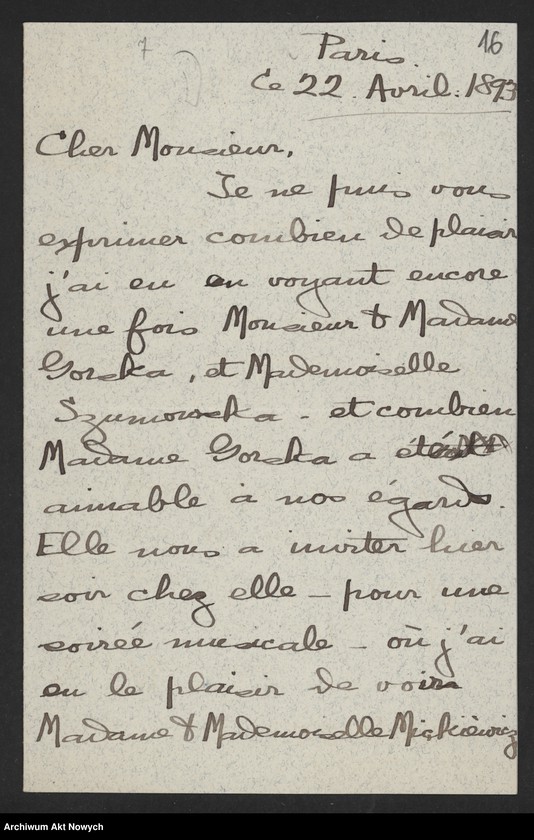 7
16
Paris.
Ce 22. Avril. 1893
Cher Monsieur,
Je ne puis vous
exprimer combien de plaisir
j'ai eu en voyant encore
une fois Monsieur & Madame
Gorska, et Mademoiselle
Szumowska - et combien
Madame Gorska a été
aimable à nos égards.
Elle nous a inviter hier
soir chez elle - pour une
soirée musicale - où j'ai
eu le plaisir de voir
Madame & Mademoiselle Mickiéwicz
Archiwum Akt Nowych